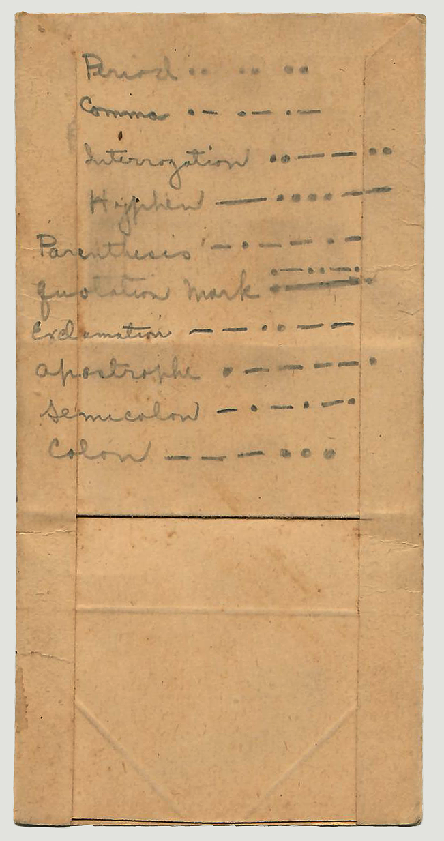 Period •• •• ••
Comma •— •— •—
Interrogation ••——••
Hyphen —••••—
Parenthesis —•——•—
Quotation Mark •—••—•
Exclamation ——••——
apostrophe •————•
Semicolon —•—•—•
Colon ———•••